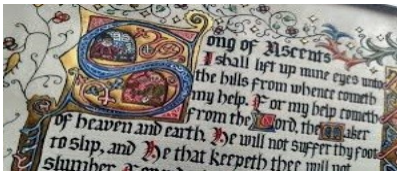 Song of Ascents
I shall lift up mine eyes unto
the hills from whence cometh
my help. For my help cometh
from the Lord, the Maker
of heaven and earth. He will not suffer thy foot
to slip, and He that keepeth thee will not
slumber